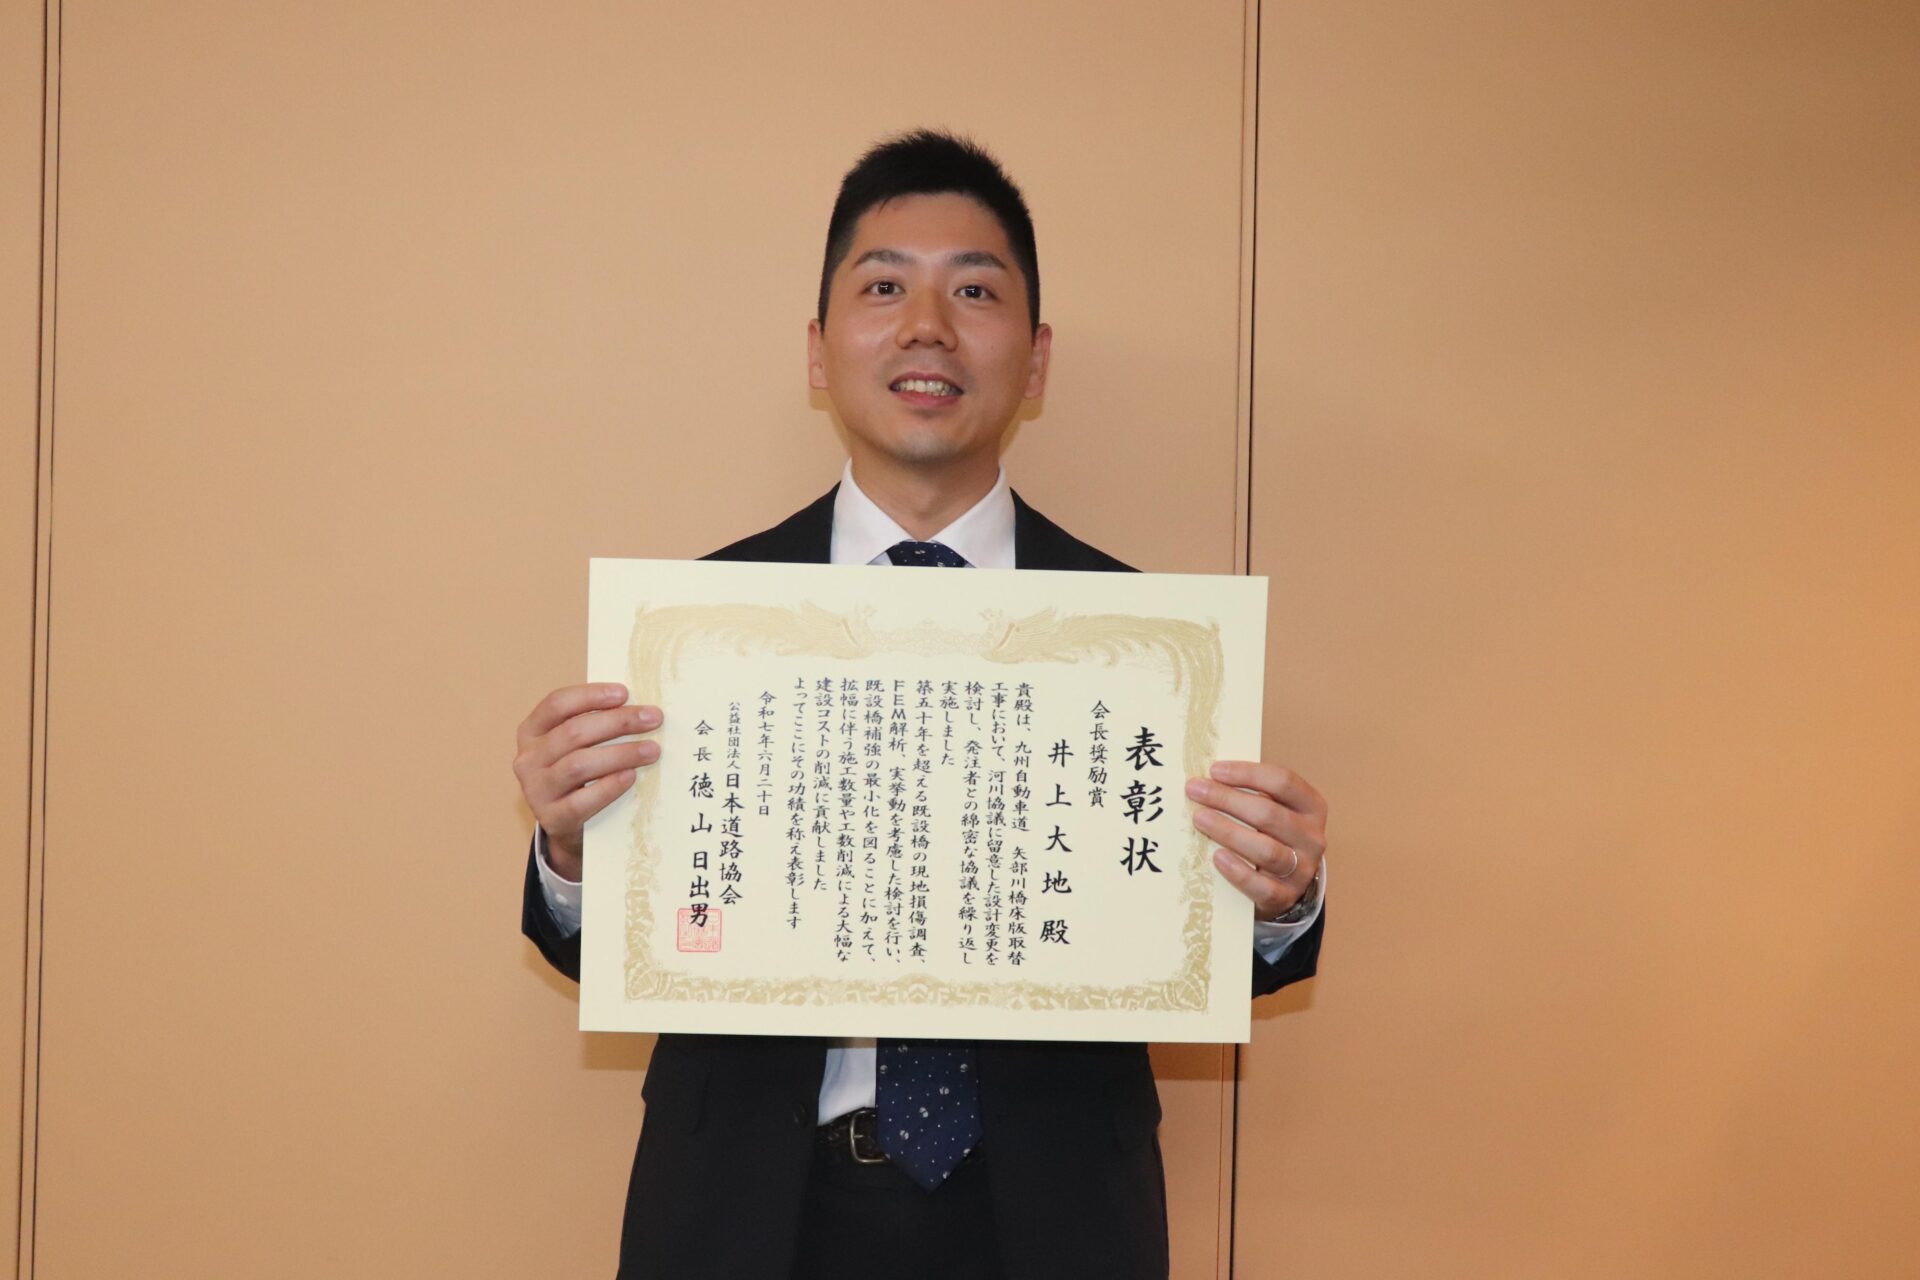 表彰状
会長奨励賞
井上大地 殿
貴殿は、九州自動車道 矢部川橋床版取替
工事において、河川協議に留意した設計変更を
検討し、発注者との綿密な協議を繰り返し
実施しました
築五十年を超える既設橋の現地損傷調査、
FEM解析、実挙動を考慮した検討を行い、
既設橋補強の最小化を図ることに加えて、
拡幅に伴う施工数量や工数削減による大幅な
建設コストの削減に貢献しました
よってここにその功績を称え表彰します
令和七年六月二十日
公益社団法人日本道路協会
会長 徳山日出男